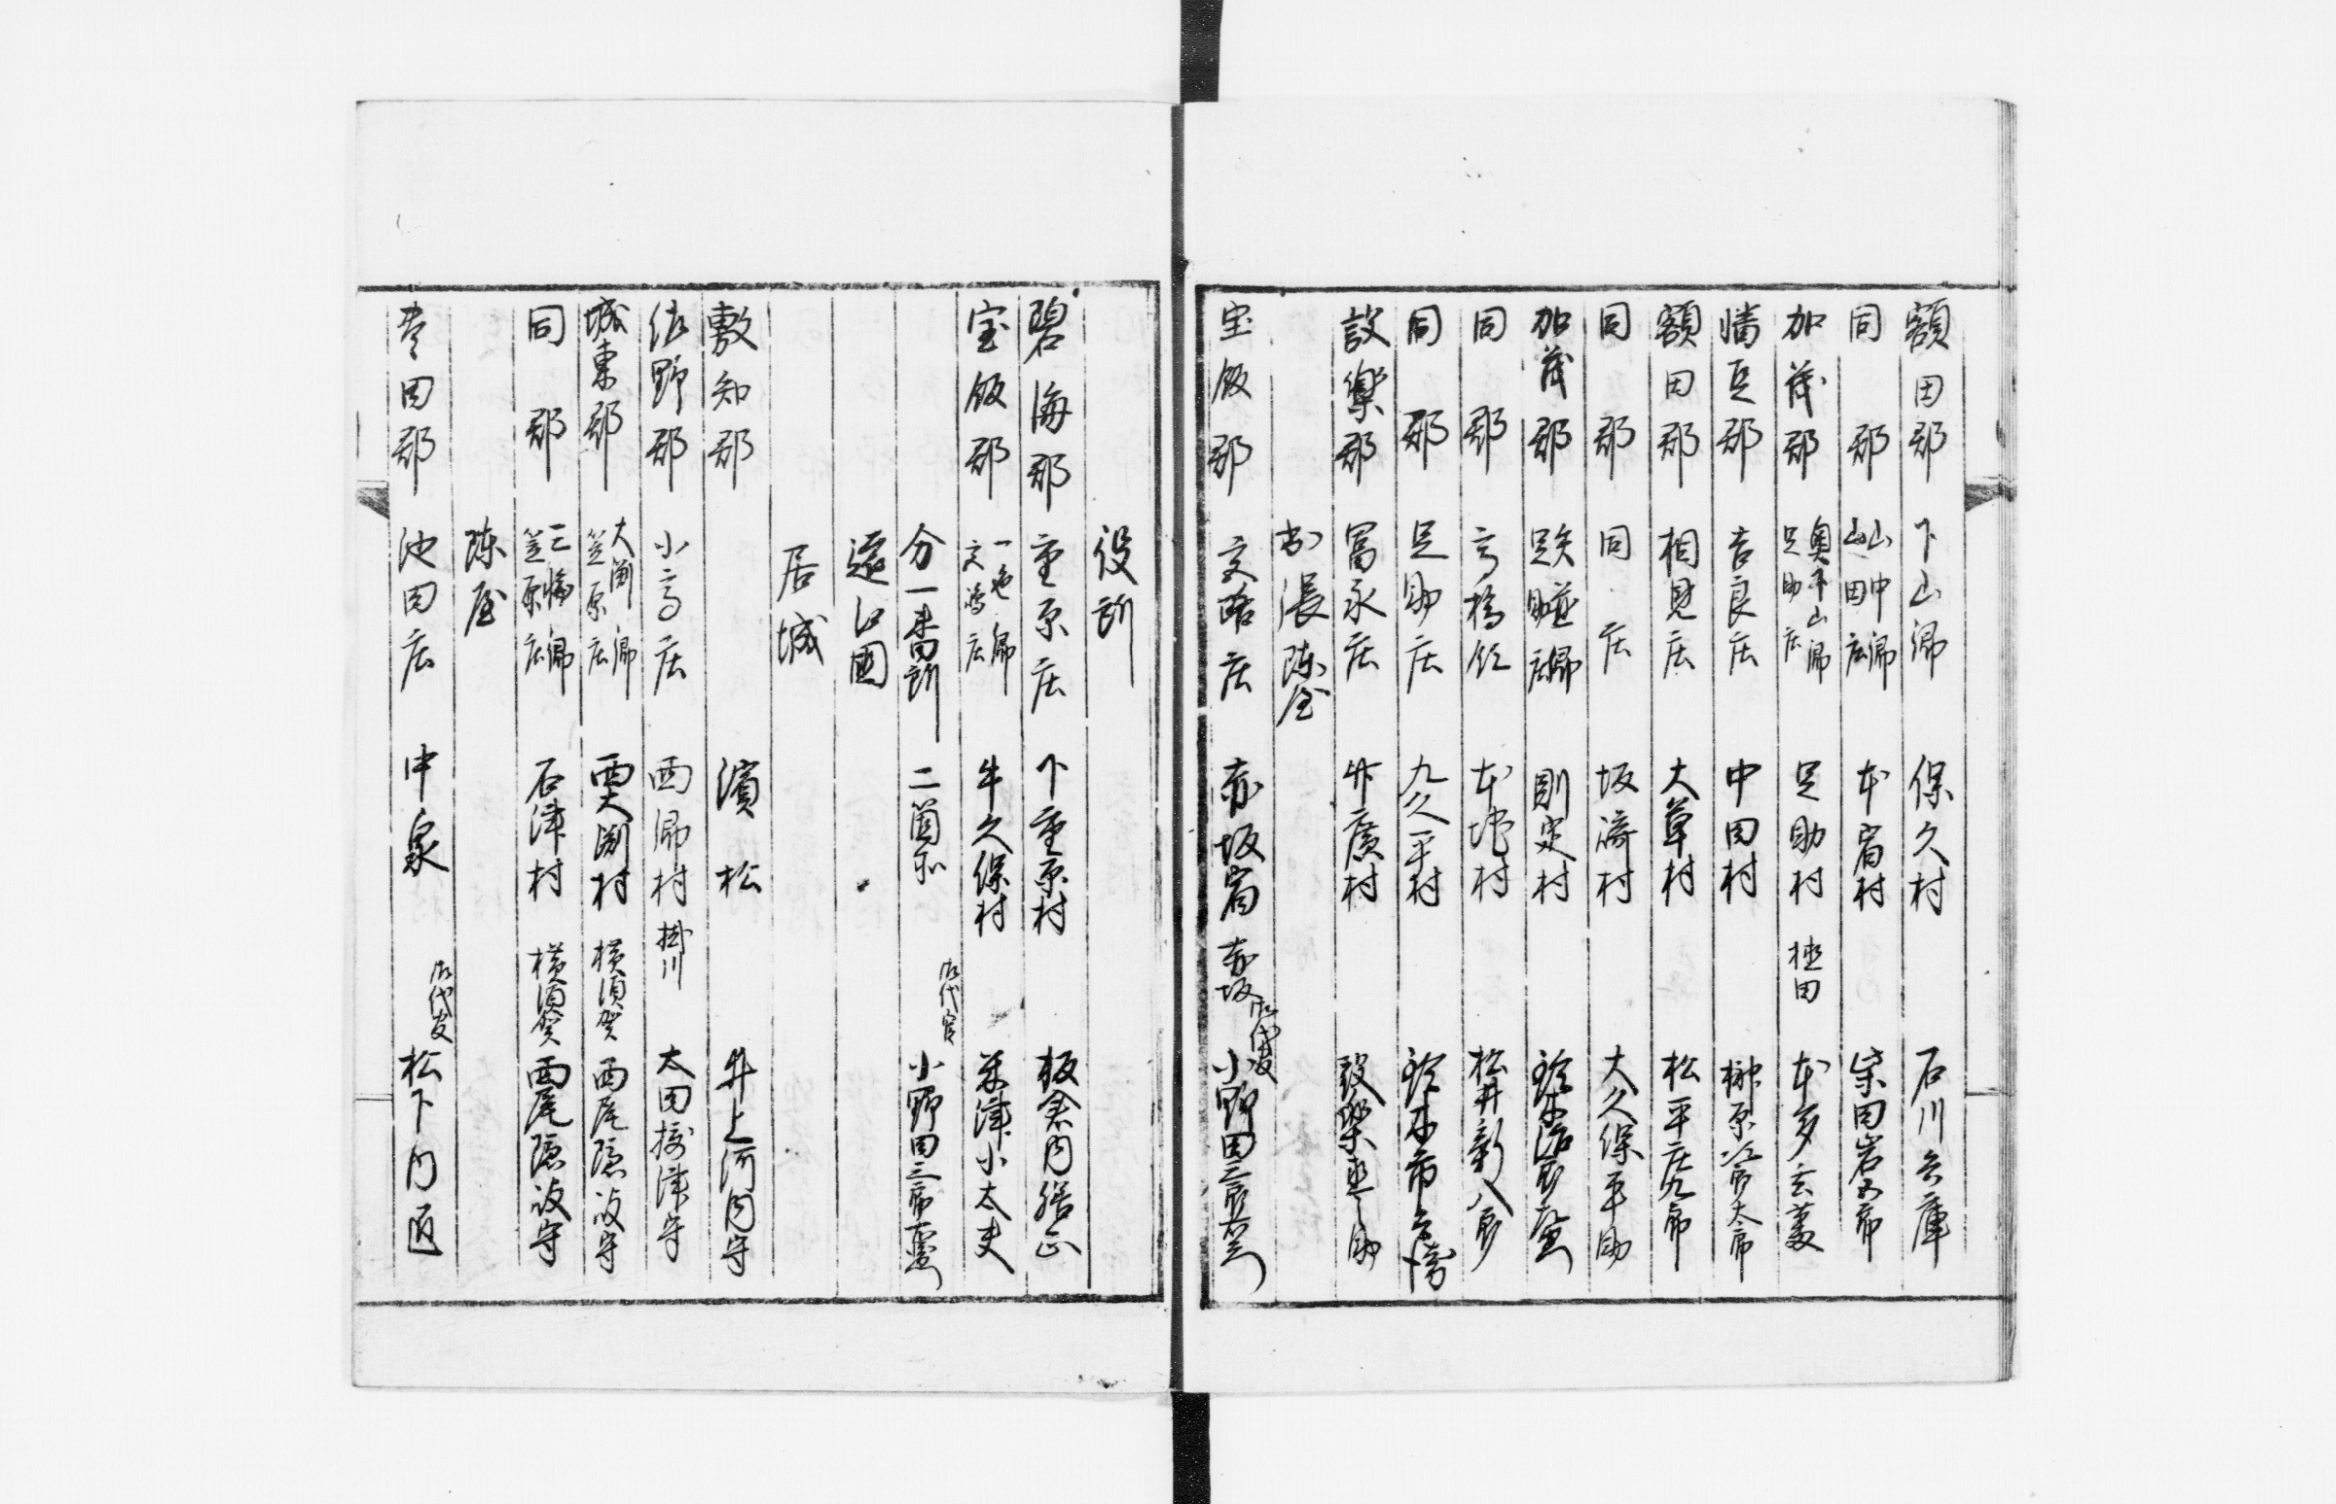 額田郡 下山郷 保久村 石川兵庫
同郡 山中郷 山田庄 本宿村 柴田岩五郎
加茂郡 奥下山郷 足助庄 足助村 極田 本多玄蕃
幡豆郡 吉良庄 中田村 榊原次郎太郎
額田郡 相見庄 大草村 松平庄九郎
同郡 同庄 坂﨑村 大久保平助
加茂郡 郷 足助庄 則定村 鈴木
同郡 高橋 村 松井新八郎
同郡 足助庄 九久平村 鈴木市兵衛
設樂郡 冨永庄 竹廣村 設樂 助
出張陣屋
宝飯郡 庄 赤坂宿 赤坂 御代官 小野田三郎右衛門
役所
碧海郡 重原庄 下重原村 板倉内膳正
宝飯郡 一色郷 庄 牛久保村 米津小太夫
分一番所 二箇所 御代官 小野田三郎右衛門
遠江國
居城
敷知郡 濱松 井上河内守
佐野郡 小高庄 西郷村 掛川 太田摂津守
城東郡 大渕郷 笠原庄 西大渕村 横須賀 西尾隠岐守
同郡 三幡郷 笠原庄 石津村 横須賀 西尾隠岐守
陣屋
豊田郡 池田庄 中泉 御代官 松下内匠